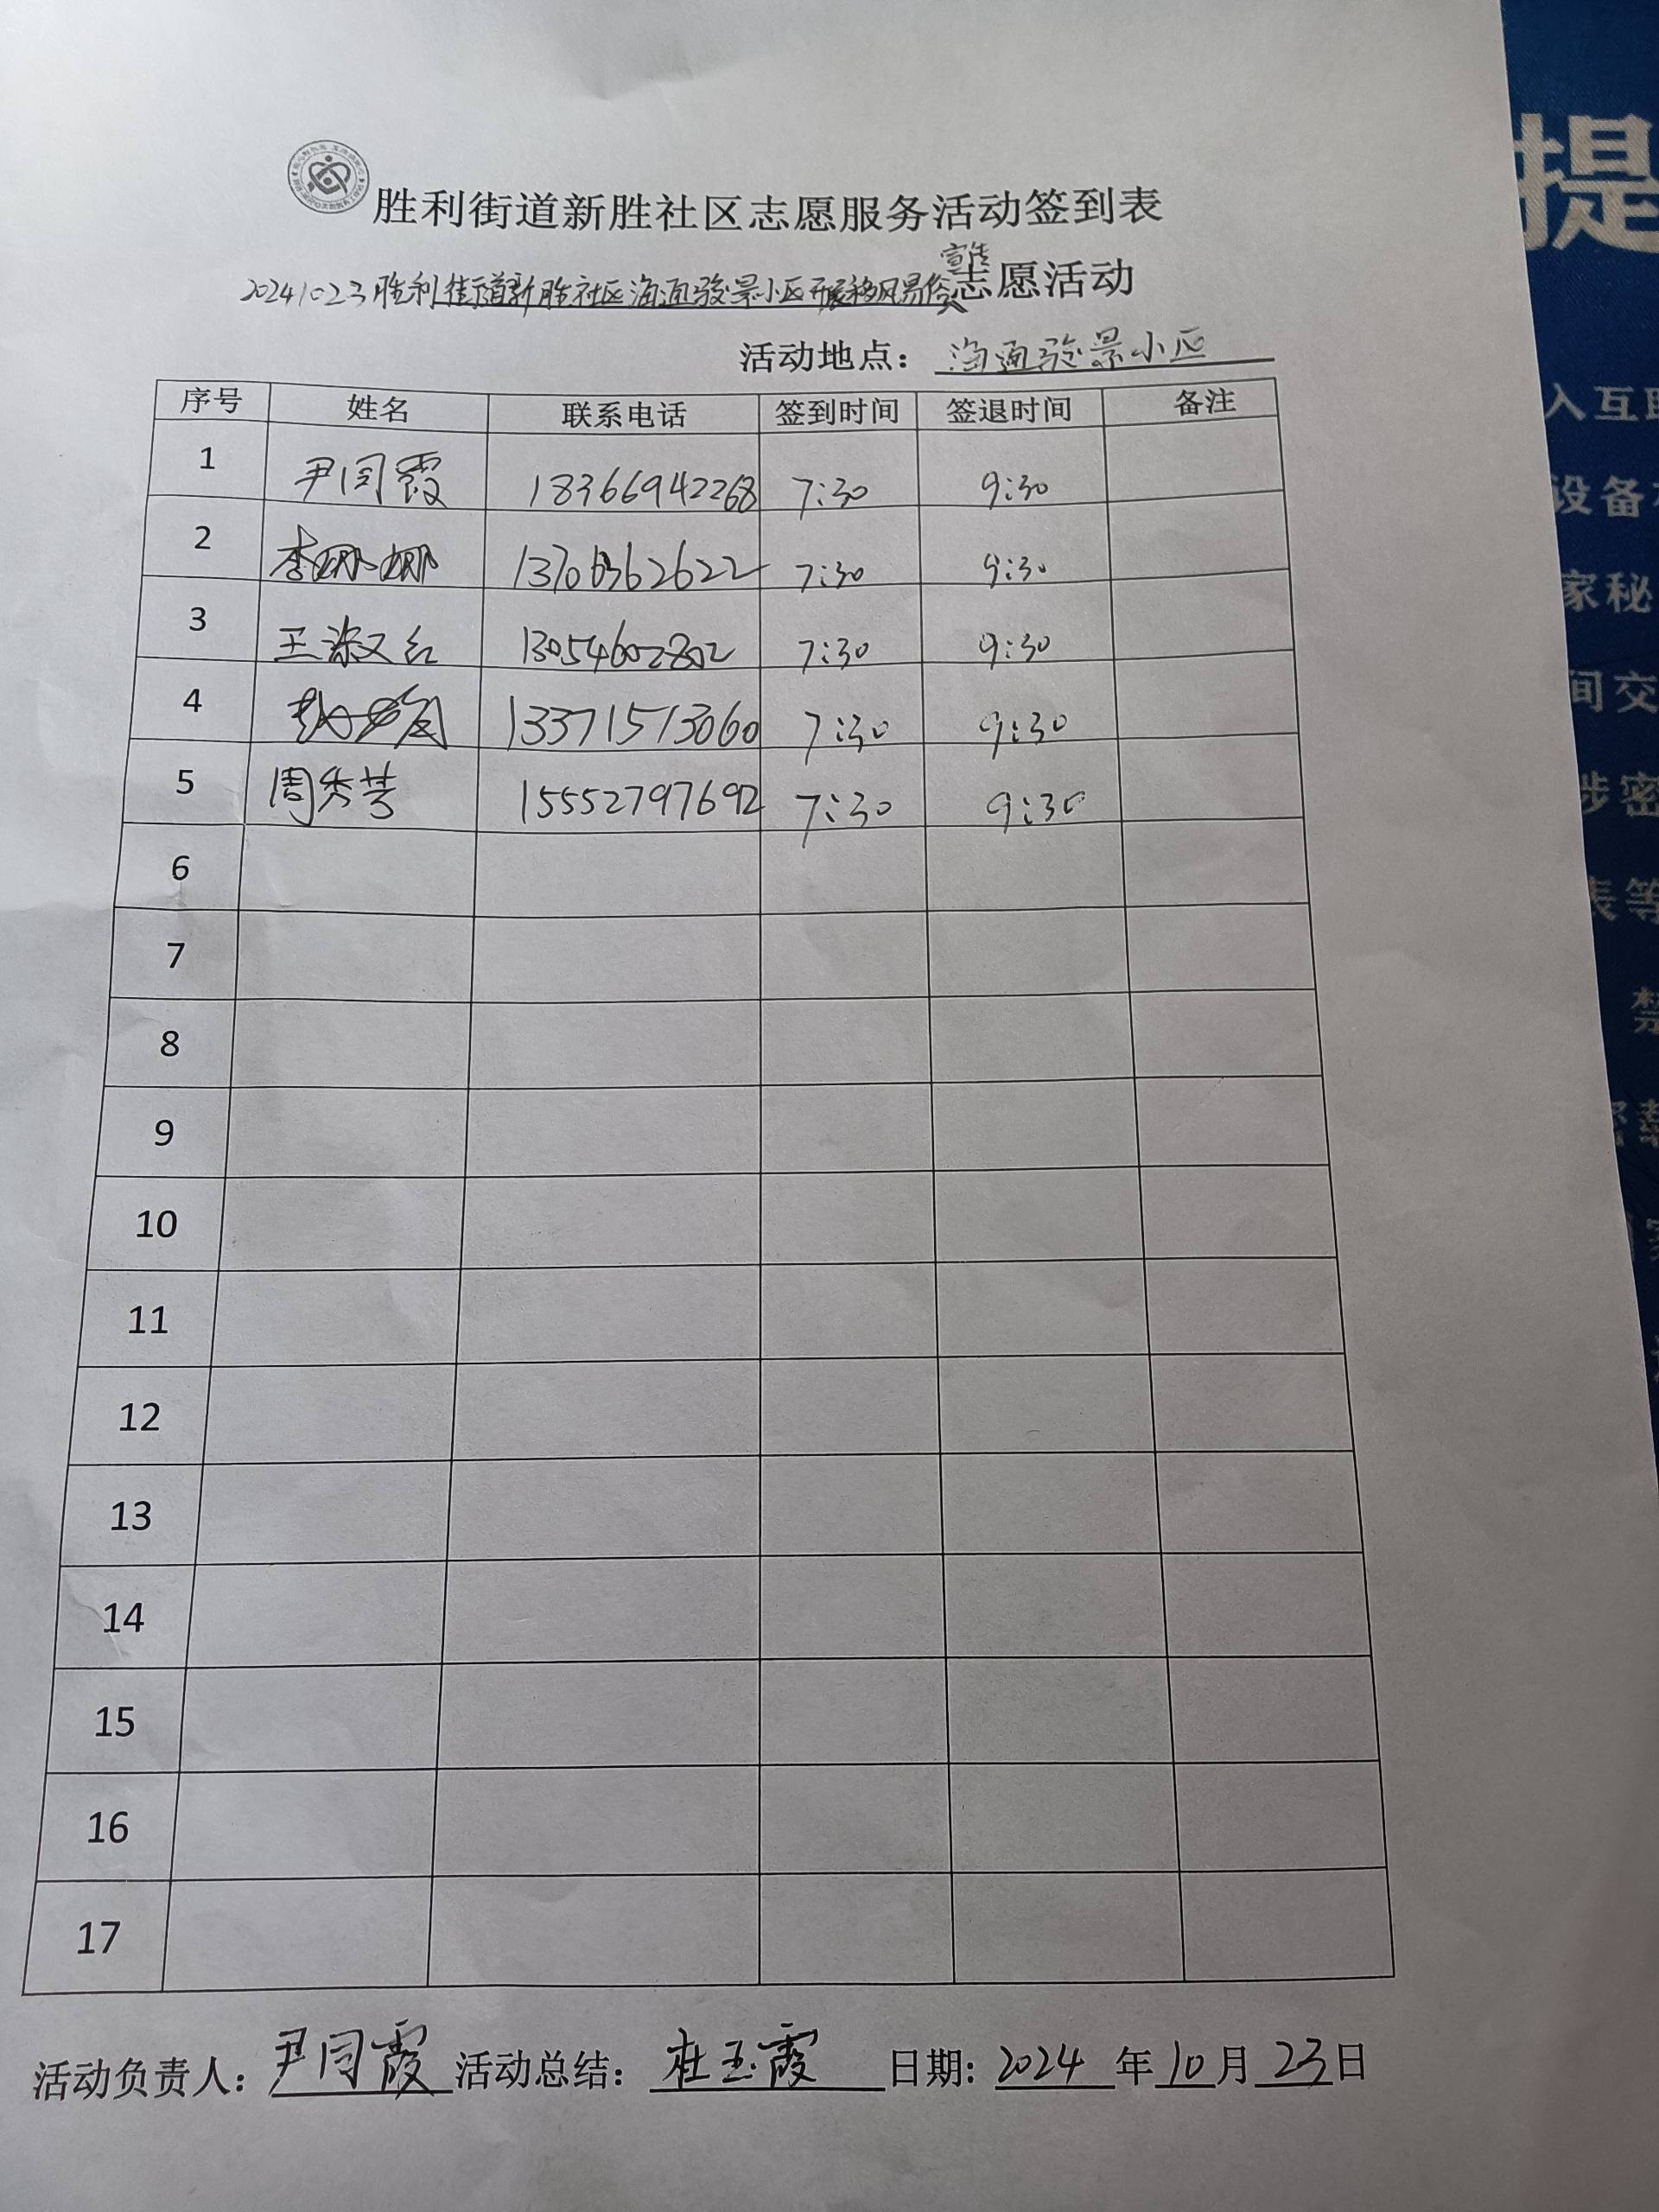 胜利街道新胜社区志愿服务活动签到表
宣传
20241023胜利街道新胜社区海通骏景小区开展移风易俗志愿活动
活动地点：海通骏景小区
序号 姓名 联系电话 签到时间 签退时间 备注
1 尹闫霞 18366942268 7:30 9:30
2 李娜娜 13706362622 7:30 9:30
3 王淑红 13054602802 7:30 9:30
4 13371513060 7:30 9:30
5 周秀芳 15552797692 7:30 9:30
6
7
8
9
10
11
12
13
14
15
16
17
活动负责人：尹闫霞 活动总结：杜玉霞 日期：2024年10月23日
提
入互
设备
家秘
间交
涉密
表等
禁